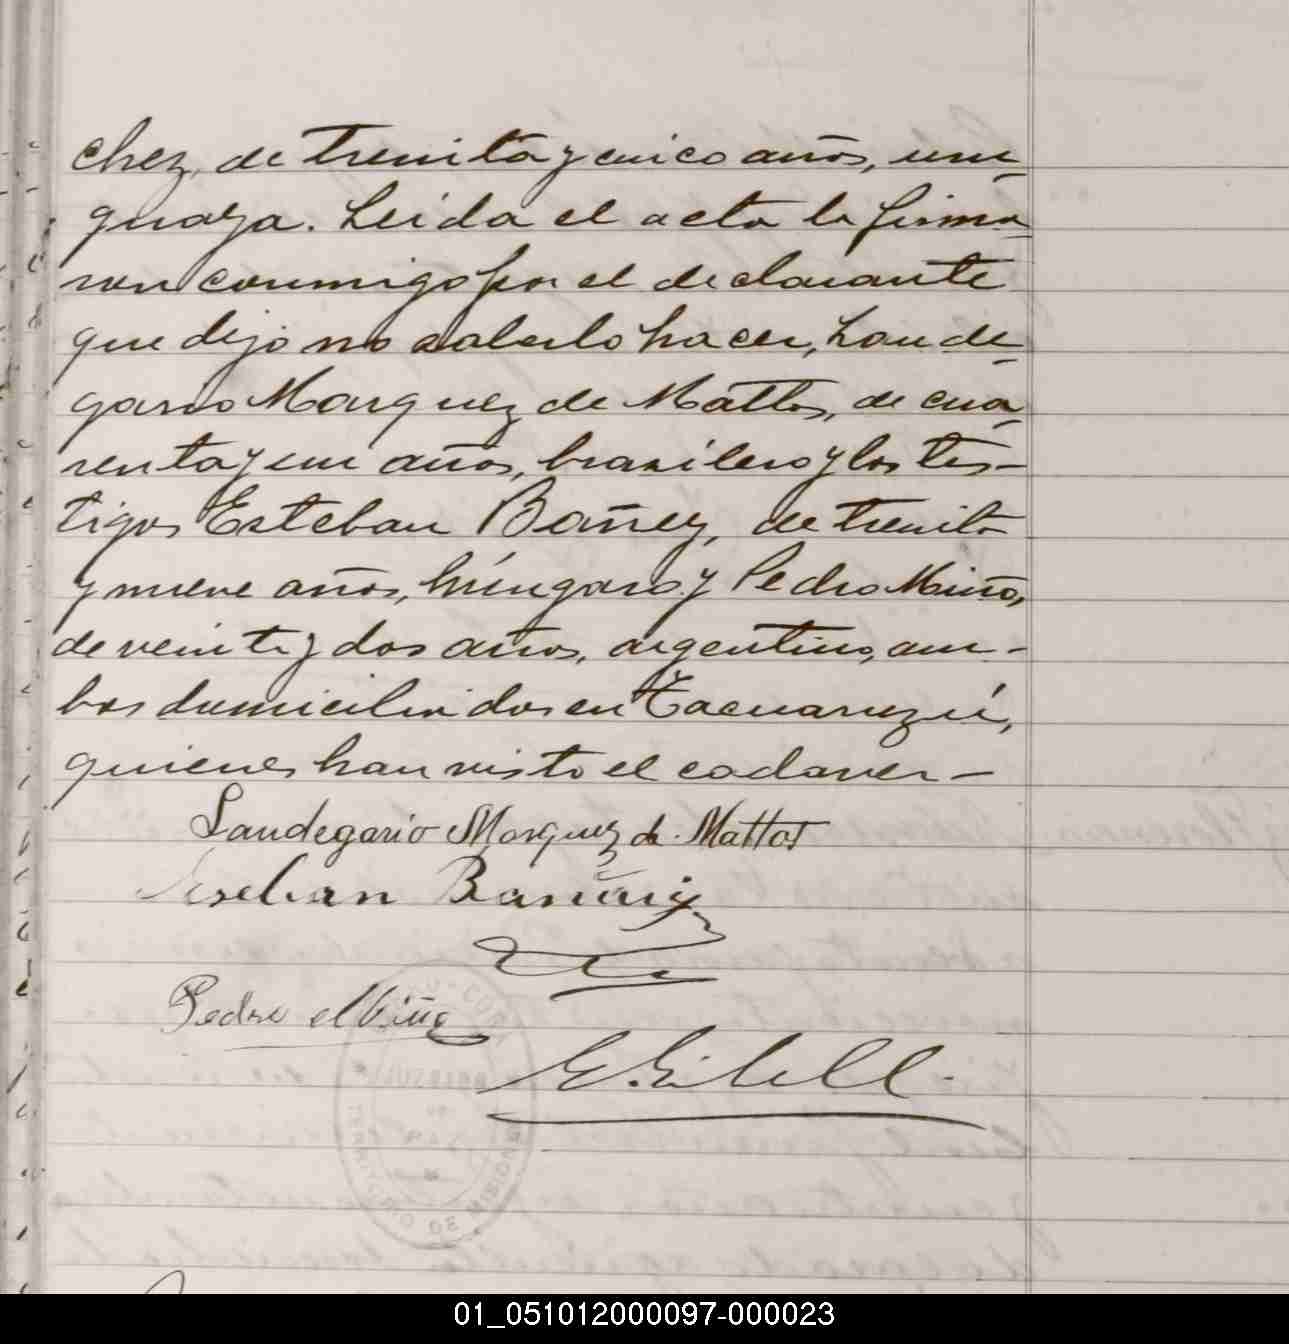 chez, de treinta y cinco años, uru-
guaya. Leida el acta la firma-
ron conmigo por el declarante
que dijo no saberlo hacer, Laude-
gario Marquez de Mattos, de cua-
renta y un años, brazilero y los tes-
tigos Esteban Bañez, de treinta
y nueve años, húngaro y Pedro Miño,
de veinte y dos años, argentino, am-
bos domiciliados en Tacuaruzú,
quienes han visto el cadaver -
Laudegario Marquez de Mattos
Esteban
Pedro Miño
TERRITORIO DE MISIONES
01_051012000097-000023